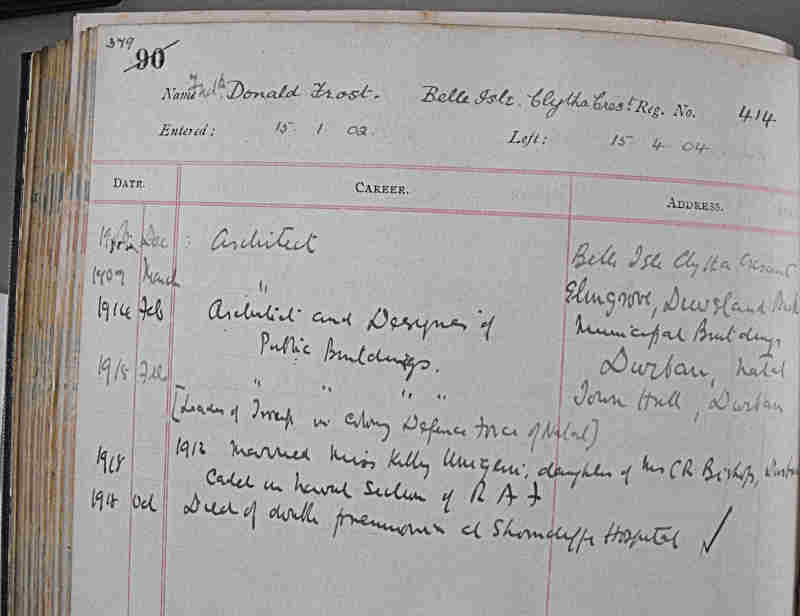 379
90
Name Fredk. Donald Frost. Belle Isle. Clytha Crest. Reg. No. 414.
Entered: 15 1 02. Left: 15 4 04
DATE. CAREER. ADDRESS.
Dec : Architect Belle Isle Clytha Crescent
1909 March " Elmgrove,
1914 Feb Architect and Designer of Municipal Buildings
Public Buildings. Durban, Natal
1915 Feb " " " " Town Hall, Durban
[Leader of Troop in Colony Defence Force of Natal]
1912 Married Miss Kitty Umgeni, daughter of Mrs C R Bishop, Durban
1918 Cadet in Naval Section of R A F
1918 Oct Died of double pneumonia at Shorncliffe Hospital ✓